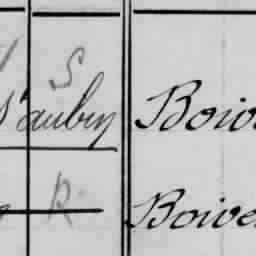 S
S'aubin Boiv
R Boive